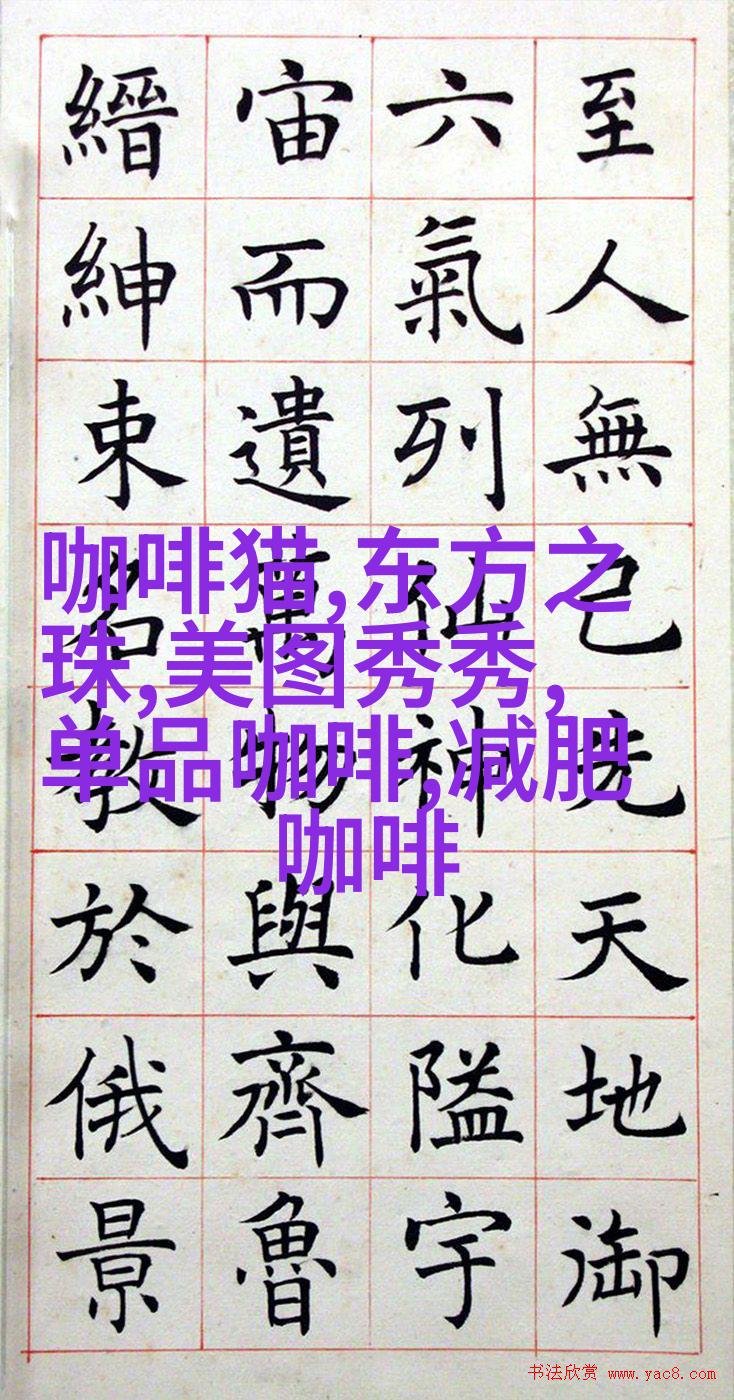 至人無己先天地御
六氣列仙神化隘宇
宙而遺萬物與齊魯
縉紳束名教於俄景
咖啡猫,东方之
珠,美图秀秀,
单品咖啡,减肥
咖啡
书法欣赏 www.yac8.com